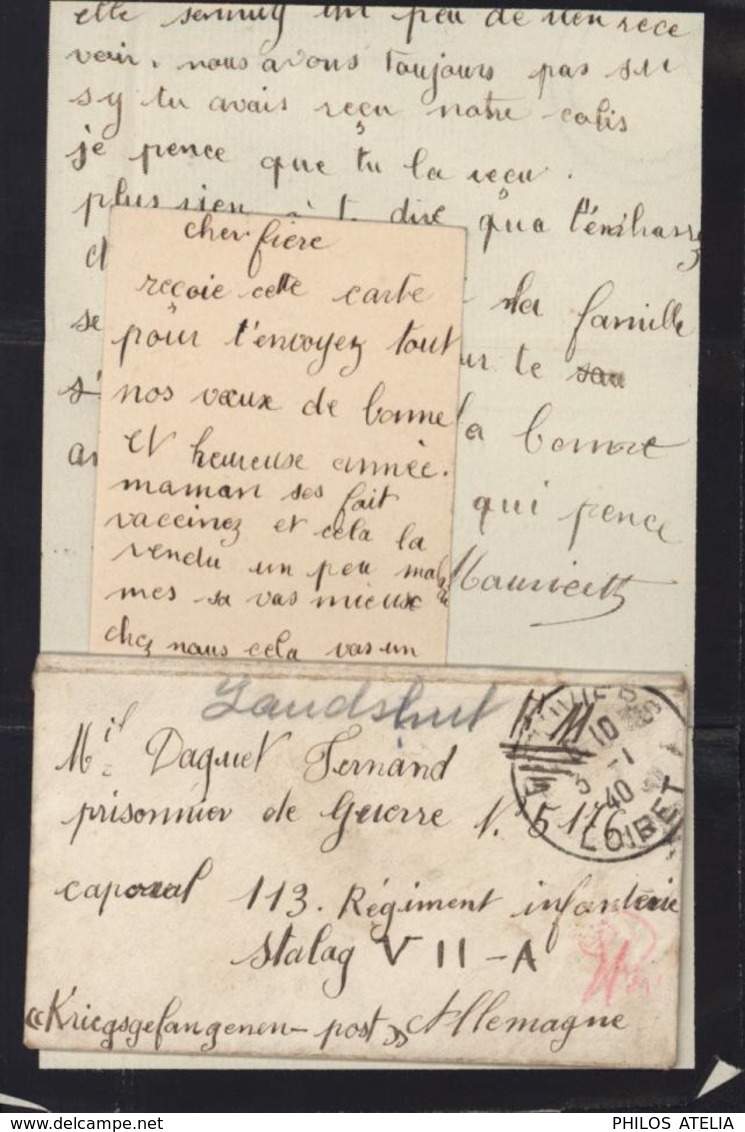 elle sennuy un peu de rien rece
voir. nous avons toujours pas su
s y tu avais reçu notre colis
je pence que tu la reçu.
plus rien à te dire qua t'embrassez
la famille
te
la bonne
qui pence
Mauricett
cher fiere
reçoie cette carte
pour t'envoyez tout
nos vœux de bonne
et heureuse année.
maman ses fait
vaccinez et cela la
rendu un peu malade
mes sa vas mieux
chez nous cela vas un
Landshut
LOIRET
10
5 -1
40
Mil Daquet Fernand
prisonnier de Guerre N° 5176
caporal 113. Régiment infanterie
Stalag VII-A
«Kriegsgefangenen-post» Allemagne
PHILOS ATELIA